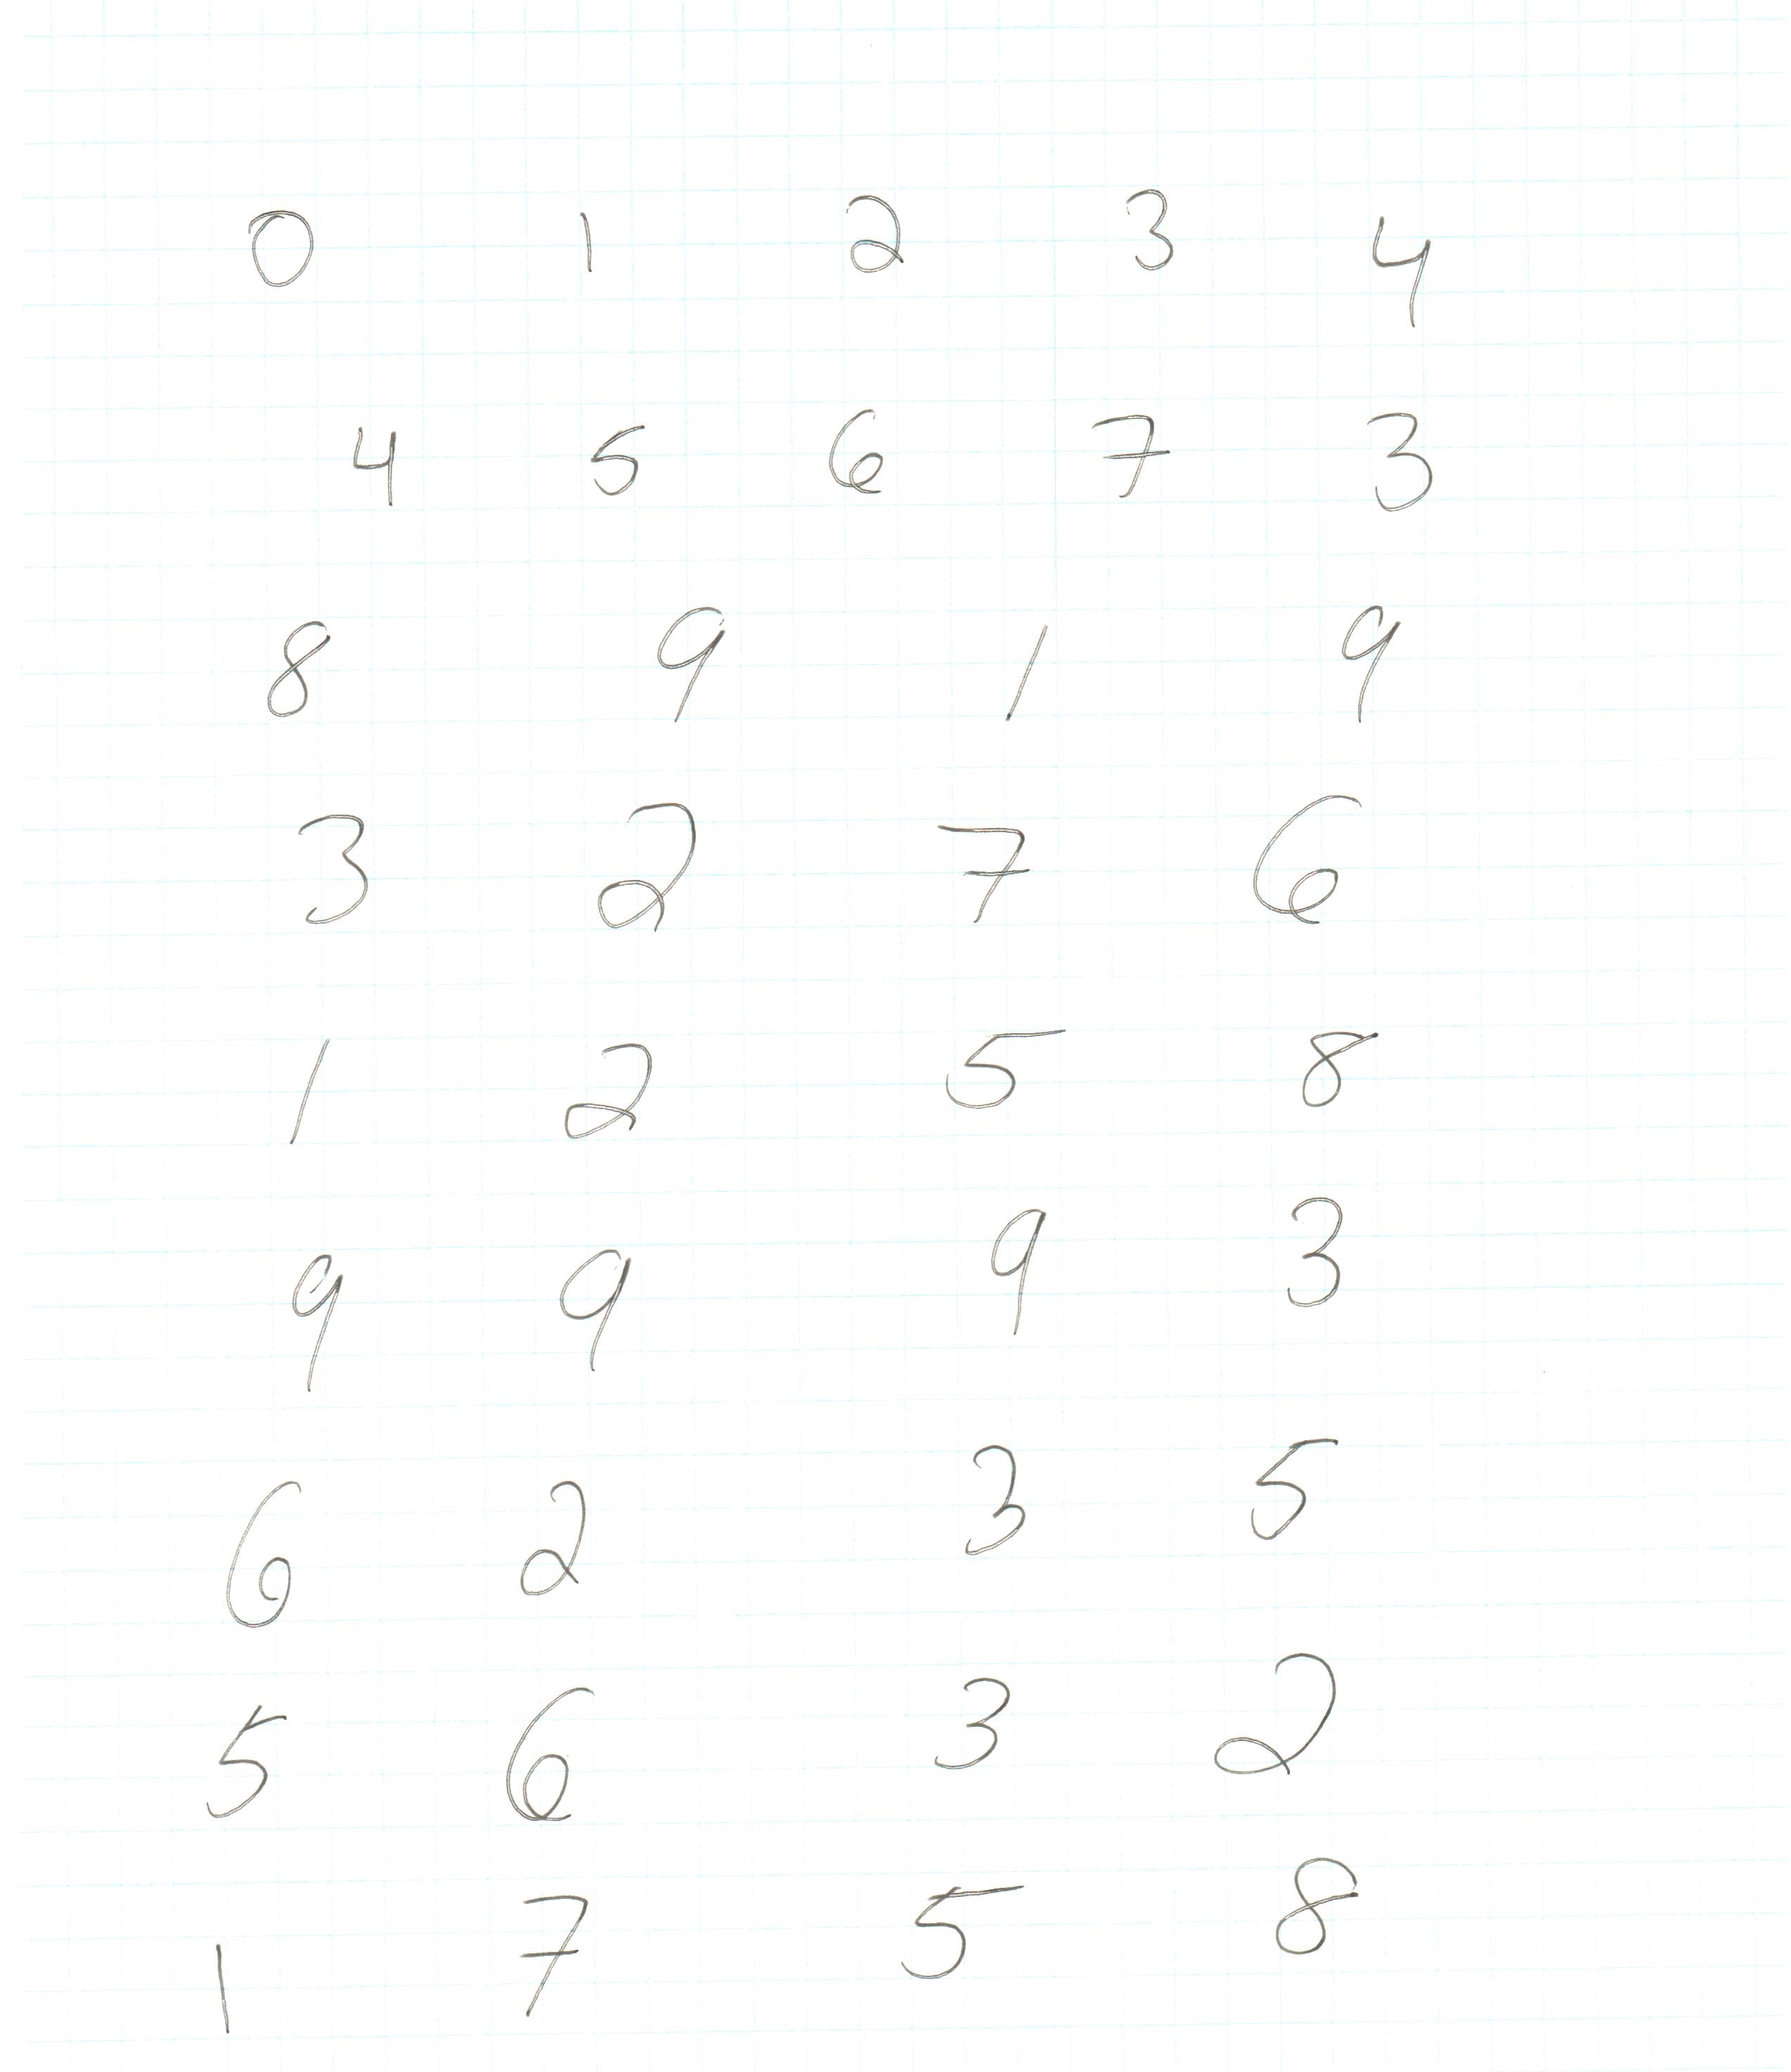 0 1 2 3 4
4 5 6 7 3
8 9 1 9
3 2 7 6
1 2 5 8
9 9 9 3
6 2 3 5
5 6 3 2
1 7 5 8